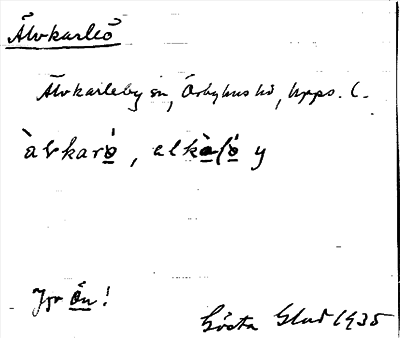 Älvkarleö
Älvkarleby sn, Örbyhus hd, Upps. l.
àvkarö́, elkàlö́ y
Jfr Ön!
Gösta Glad 1935